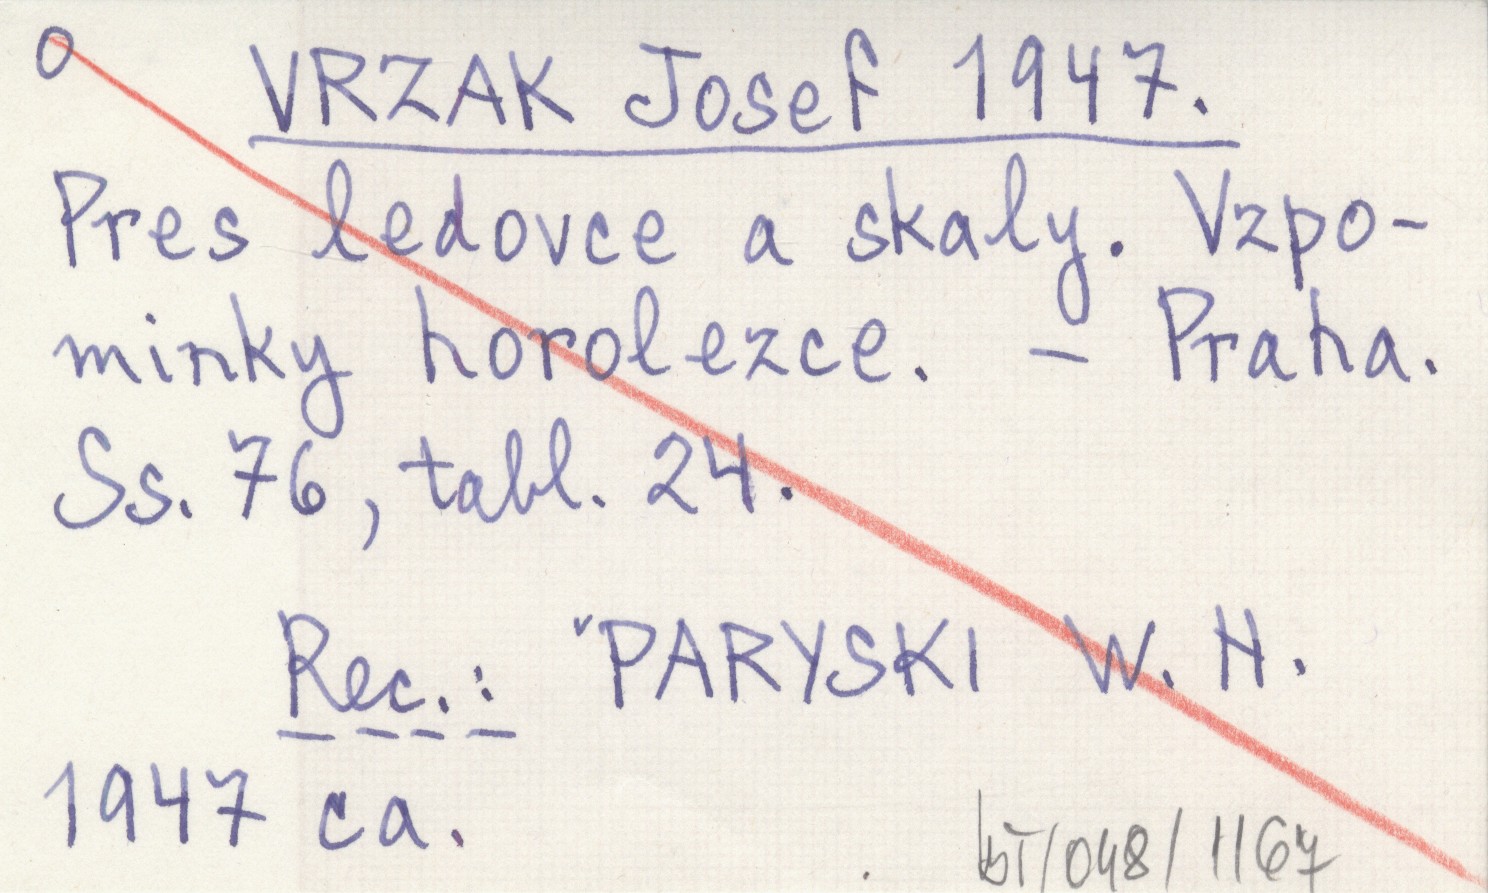 O VRZAK Josef 1947.
Pres ledovce a skaly. Vzpo-
minky horolezce. – Praha.
Ss. 76, tabl. 24.
Rec.: PARYSKI W. H.
1947 ca.
/048/1167